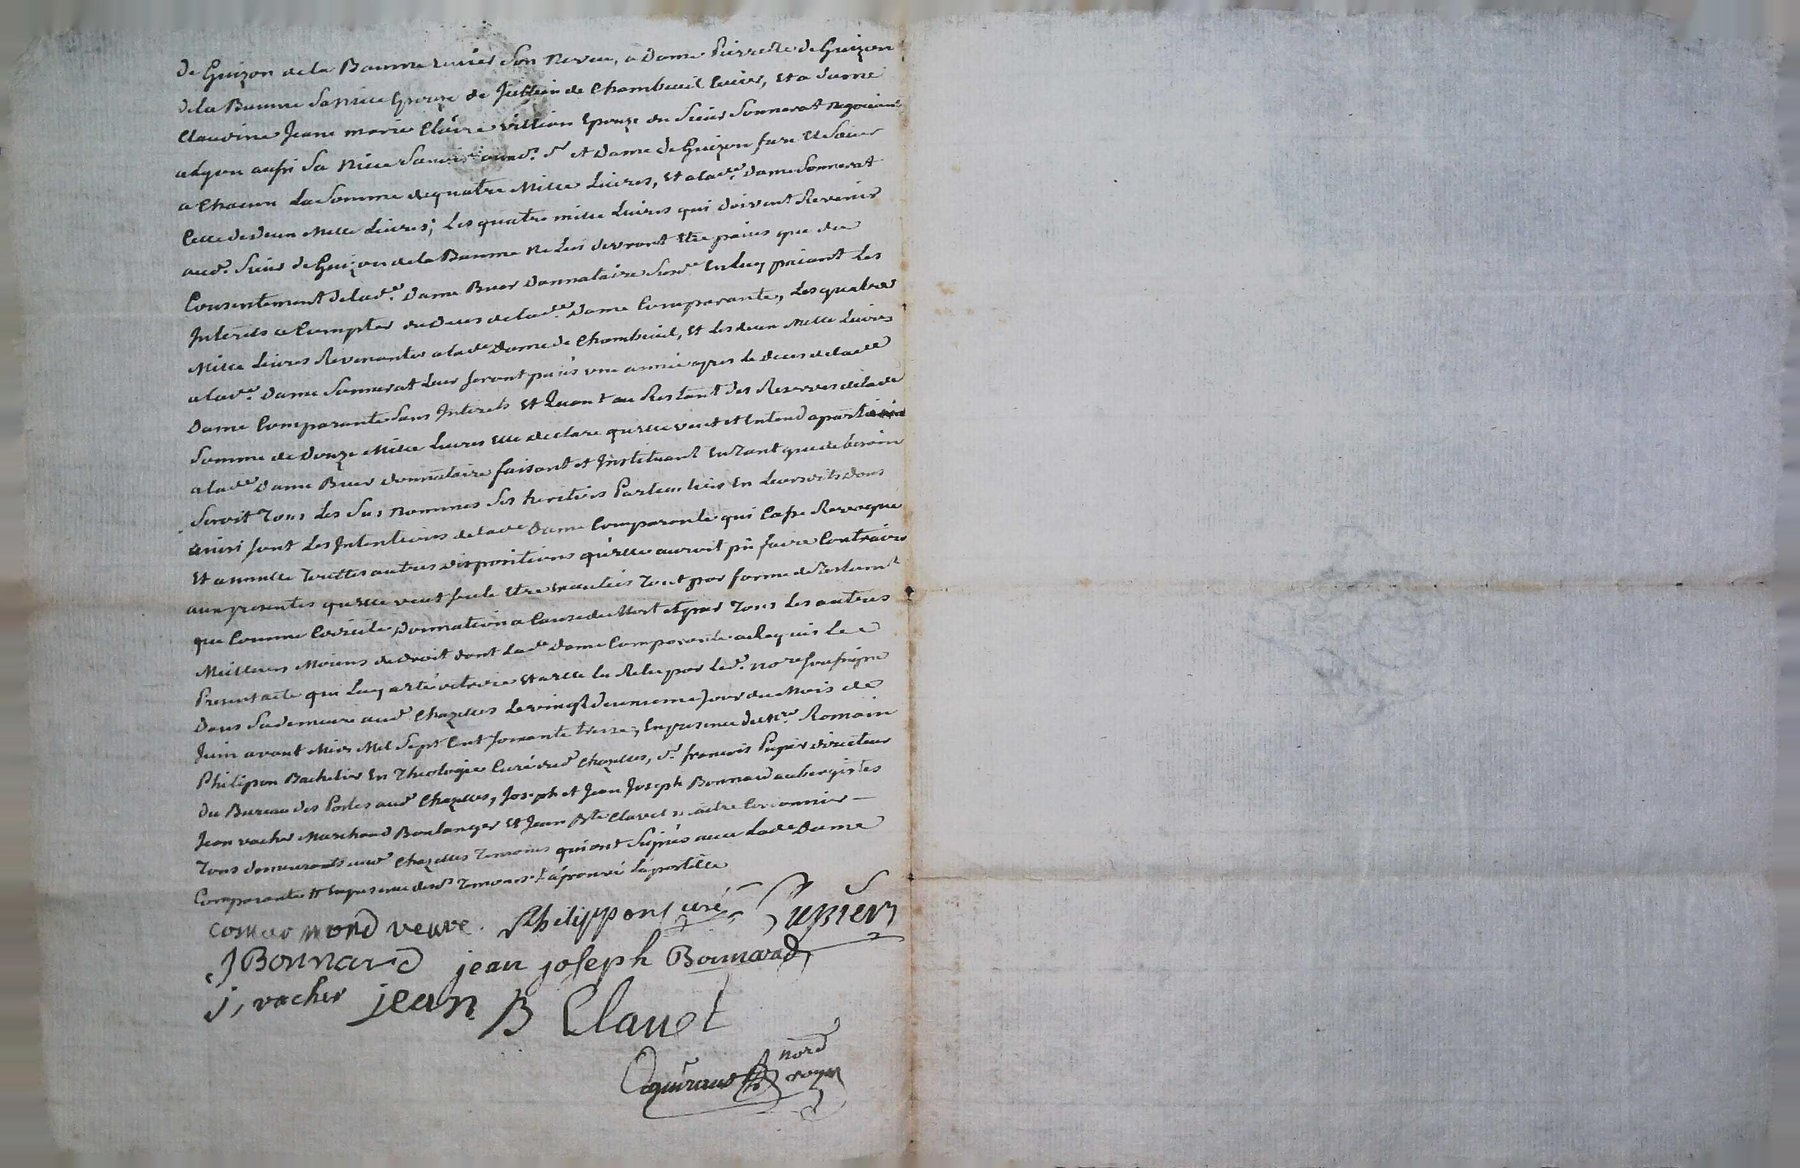 de Guizon de la Baume ecuier son neveu, a Dame Pierrette de Guizon
de la Baume sa niece Epouze de Jullien de Chambeuil Ecuier, et a Dame
Claudine Jeane marie Claire villion Epouze du sieur Sonnerat negotiant
a Lyon aussi sa niece savoir aud. sr et Dame de Guizon frere et soeur
a chacun la somme de quatre Mille Livres, et a lade. Dame Sonnerat
celle de deux Mille Livres; Les quatre mille Livres qui doivent Revenir
aud. sieur de Guizon de la Baume ne lui devront etre paiees que du
Consentement de lade. Dame Buer Donnataire susde. En luy paiant Les
Interets a Compter du deces de lade. Dame Comparante, Les quatre
Mille Livres Revenantes a lade Dame de Chambeuil, et Les deux Mille Livres
a lade. Dame Sonnerat leur seront paiés une année apres le deces de lade
Dame Comparante sans Interets et Quant au Restant des Reserves de lade
somme de Douze Mille Livres Elle declare qu'elle veut et Entend
a lade Dame Buer donnataire faisant et Instituant En Tant que de besoin
seroit Tous Les sus nommes ses heritiers Particuliers En leursdits Dons
ainsi sont Les Intentions de lade Dame Comparante qui Casse Revoque
Et annulle Touttes autres dispositions qu'elle auroit pû faire Contraires
aux presentes qu'elle veut seule Etre Executées Tout par forme de Testamt
que Comme Codicile, Donnation a Cause de Mort et par Tous Les autres
Meilleurs Moiens de droit dont lade Dame Comparante a Requis Le
Present acte qui luy a eté octroié et a elle lu Relu par led. nore soussigné
Dans sa demeure aud Chazelles le vingt deuxieme jour du Mois de
Juin avant Midi Mil sept Cent soixante treize, En presence de Mre Romain
Philipon Bachelier En Theologie Curé dud Chazelles, sr. francois Pupier directeur
du Bureau des Postes aud Chazelles, Joseph et Jean Joseph Bonnard aubergistes
Jean vacher Marchand Boulanger et Jean Bte Clavel maitre Cordonnier
Tous demeurants aud Chazelles Temoins qui ont signés avec lade Dame
Comparante Et En presence desds Temoins
veuve. Philippon curé Pupier
J Bonnard jean joseph Bonnard
j, vacher jean B Clauel
nord
royal